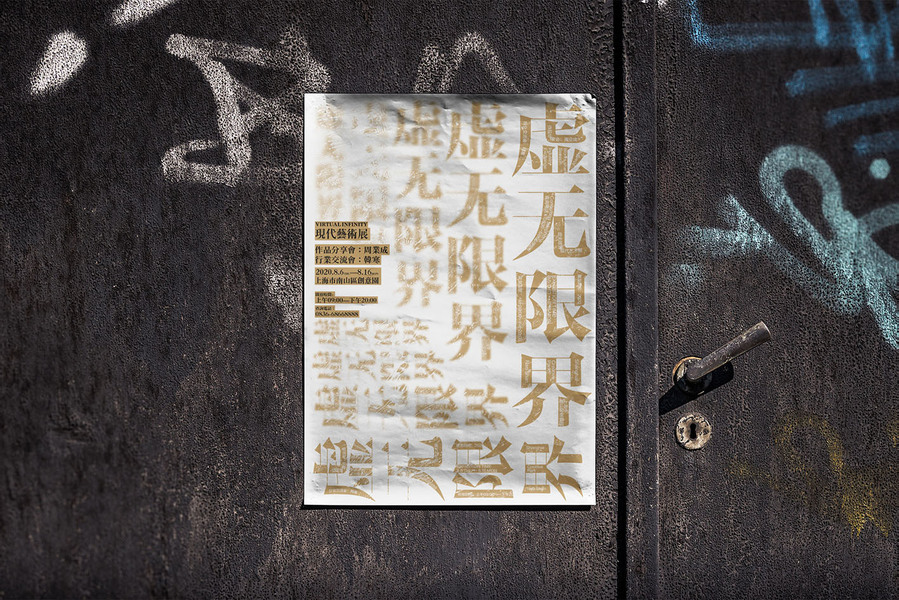 虚无限界
虚无限界
虚无限界
VIRTUAL INFINITY
現代藝術展
作品分享會：周業成
行業交流會：韓寒
2020.8.6 —8.16
上海市南山區創意園
上午09:00—下午20:00
0836-68668888
虚无限界
虚无限界
虚无限界